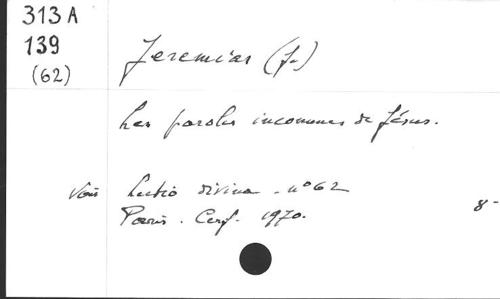 313 A
139
(62)
Jeremias (J.)
Les paroles inconnues de Jésus.
Voir Lectio divina. n° 62
Paris. Cerf. 1970.
8-